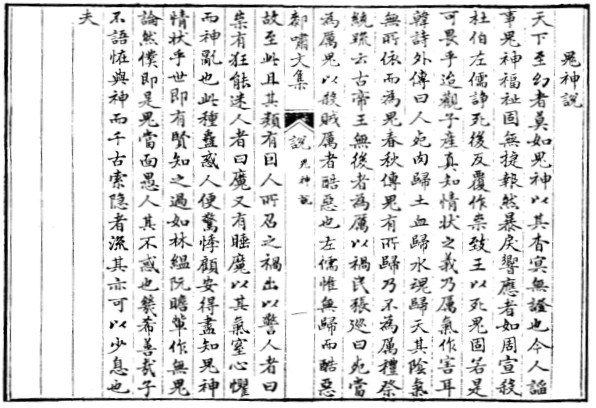 鬼神說
天下至幻者莫如鬼神以其杳冥無證也今人謟
事鬼神福祉固無捷報然暴戾響應者如周宣殺
杜伯左儒諍死後反覆作祟致王以死鬼固若是
可畏乎迨觀子產真知情狀之義乃厲氣作害耳
韓詩外傳曰人死肉歸土血歸水魂歸天其陰氣
無所依而為鬼春秋傳鬼有所歸乃不為厲禮祭
統疏云古帝王無後者為厲以禍民張巡曰死當
為厲鬼以殺賊厲者酷惡也左儒惟無歸而酷惡
郝嘯文集
說
鬼神說
一
故至此且其類有曰人所召之禍出以警人者曰
祟有狂能迷人者曰魔又有睡魔以其氣窒心懼
而神亂也此種蠱惑人便驚悸顧安得盡知鬼神
情狀乎世即有賢知之過如林縕阮瞻輩作無鬼
論然僕即是鬼當面愚人其不惑也幾希善哉子
不語怪與神而千古索隐者流其亦可以少息也
夫